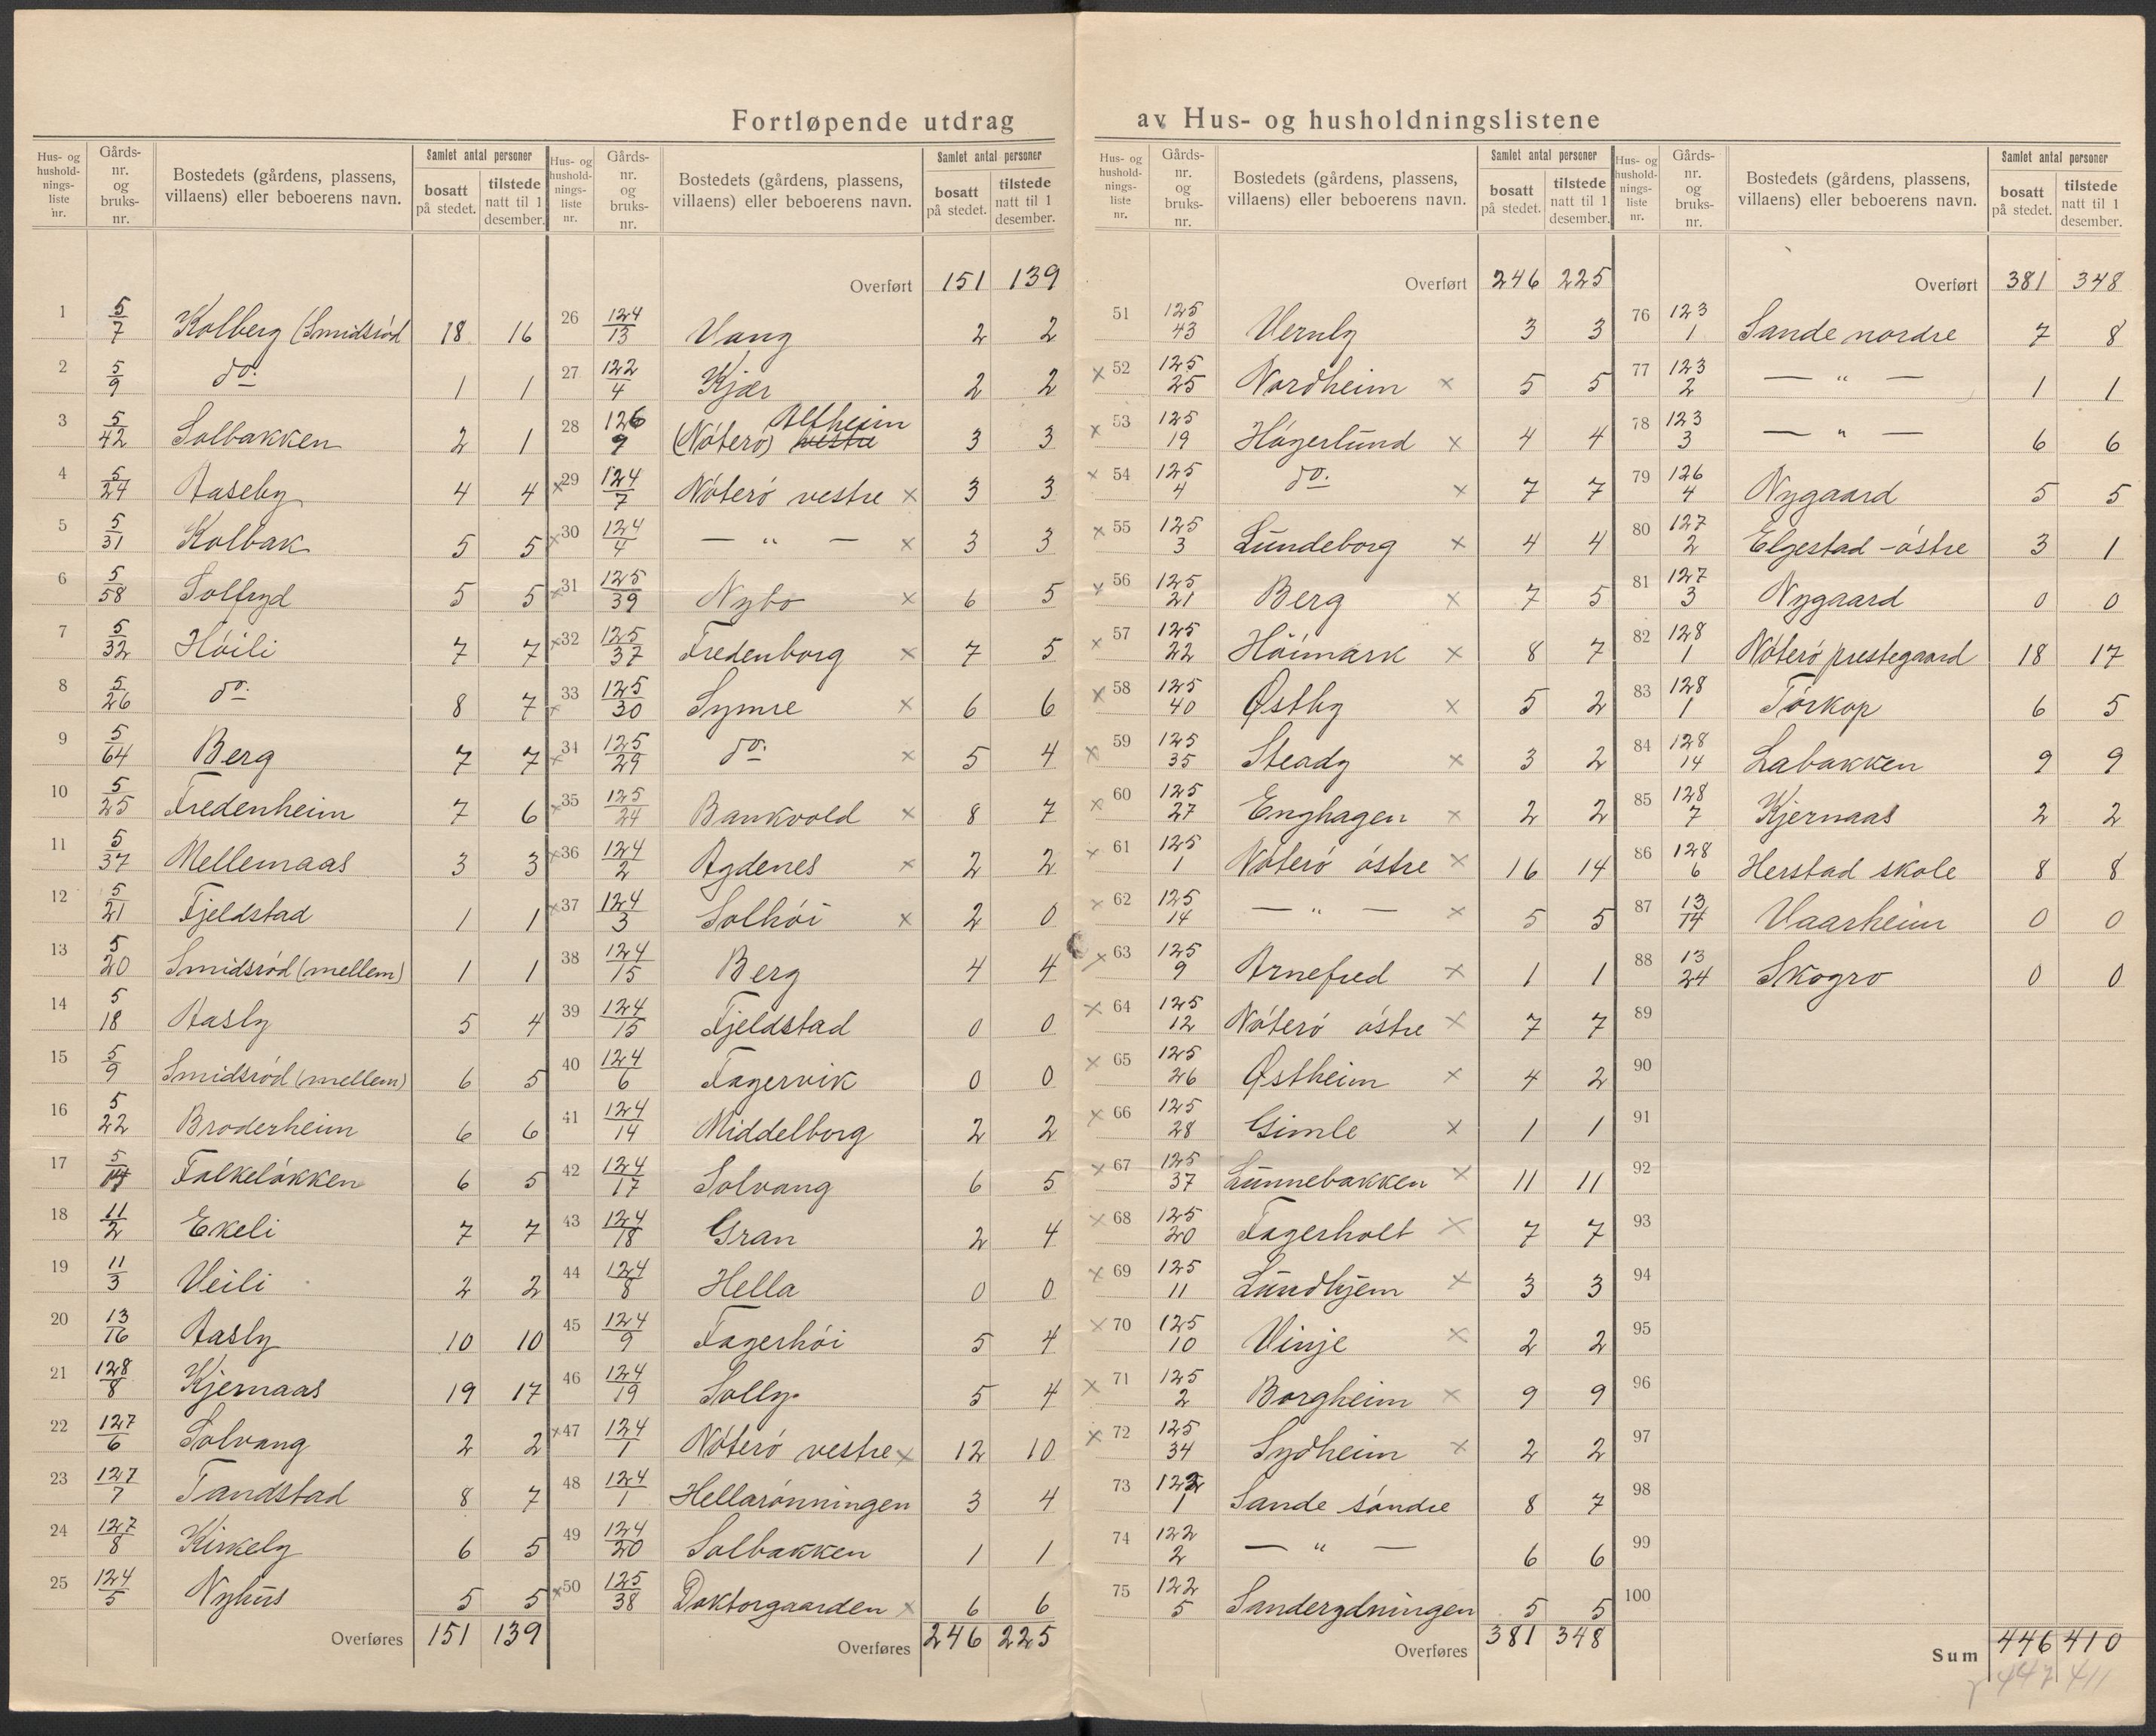 Fortløpende utdrag av Hus- og husholdningslistene
Hus- og hushold- nings- liste nr. | Gårds- nr. og bruks- nr. | Bostedets (gårdens, plassens, villaens) eller beboerens navn. | Samlet antal personer bosatt på stedet. | tilstede natt til 1 desember.
1 5/7 Kolberg (Smidsrød 18 16
2 5/9 do. 1 1
3 5/42 Solbakken 2 1
4 5/24 Aaseby 4 4
5 5/31 Kolbak 5 5
6 5/58 Solfryd 5 5
7 5/32 Høili 7 7
8 5/26 do. 8 7
9 5/64 Berg 7 7
10 5/25 Fredenheim 7 6
11 5/37 Mellemaas 3 3
12 5/21 Fjeldstad 1 1
13 5/20 Smidsrød (mellem) 1 1
14 5/18 Aasly 5 4
15 5/9 Smidsrød (mellem) 6 5
16 5/22 Broderheim 6 6
17 5/ Falkeløkken 6 5
18 11/2 Ekeli 7 7
19 11/3 Veili 2 2
20 13/16 Aasly 10 10
21 128/8 Kjernaas 19 17
22 127/6 Solvang 2 2
23 127/7 Tandstad 8 7
24 127/8 Kirkely 6 5
25 124/5 Nyhus 5 5
Overføres 151 139
Hus- og hushold- nings- liste nr. | Gårds- nr. og bruks- nr. | Bostedets (gårdens, plassens, villaens) eller beboerens navn. | Samlet antal personer bosatt på stedet. | tilstede natt til 1 desember.
Overført 151 139
26 124/13 Vang 2 2
27 122/4 Kjær 2 2
28 126/9 (Nøterø) vestre Altheim 3 3
x 29 124/7 Nøterø vestre x 3 3
x 30 124/4 — " — x 3 3
x 31 125/39 Nybo x 6 5
x 32 125/37 Fredenborg x 7 5
x 33 125/30 Symre x 6 6
x 34 125/29 do. x 5 4
x 35 125/24 Bankvold x 8 7
x 36 124/2 Agdenes x 2 2
x 37 124/3 Solhøi x 2 0
38 124/15 Berg 4 4
39 124/15 Fjeldstad 0 0
40 124/6 Fagervik 0 0
41 124/14 Middelborg 2 2
42 124/17 Solvang 6 5
43 124/18 Gran 2 4
44 124/8 Hella 0 0
45 124/9 Fagerhøi 5 4
46 124/19 Solly 5 4
x 47 124/1 Nøterø vestre x 12 10
48 124/1 Hellarønningen 3 4
49 124/20 Solbakken 1 1
x 50 125/38 Doktorgaarden x 6 6
Overføres 246 225
Hus- og hushold- nings- liste nr. | Gårds- nr. og bruks- nr. | Bostedets (gårdens, plassens, villaens) eller beboerens navn. | Samlet antal personer bosatt på stedet. | tilstede natt til 1 desember.
Overført 246 225
51 125/43 Vernly 3 3
x 52 125/25 Nordheim x 5 5
x 53 125/19 Høgerlund x 4 4
x 54 125/4 do. x 7 7
x 55 125/3 Lundeborg x 4 4
x 56 125/21 Berg x 7 5
x 57 125/22 Høimark x 8 7
x 58 125/40 Østby x 5 2
x 59 125/35 Steady x 3 2
x 60 125/27 Enghagen x 2 2
x 61 125/1 Nøterø østre x 16 14
x 62 125/14 — " — x 5 5
x 63 125/9 Arnefred x 1 1
x 64 125/12 Nøterø østre x 7 7
x 65 125/26 Østheim x 4 2
x 66 125/28 Gimle x 1 1
x 67 125/37 Lunnebakken x 11 11
x 68 125/20 Fagerholt x 7 7
x 69 125/11 Lundhjem x 3 3
x 70 125/10 Vinje x 2 2
x 71 125/2 Borgheim x 9 9
x 72 125/34 Sydheim x 2 2
73 122/1 Sande søndre 8 7
74 122/2 — " — 6 6
75 122/5 Sanderydningen 5 5
Overføres 381 348
Hus- og hushold- nings- liste nr. | Gårds- nr. og bruks- nr. | Bostedets (gårdens, plassens, villaens) eller beboerens navn. | Samlet antal personer bosatt på stedet. | tilstede natt til 1 desember.
Overført 381 348
76 123/1 Sande nordre 7 8
77 123/2 — " — 1 1
78 123/3 — " — 6 6
79 126/4 Nygaard 5 5
80 127/2 Elgestad - østre 3 1
81 127/3 Nygaard 0 0
82 128/1 Nøterø prestegaard 18 17
83 128/1 Torkop 6 5
84 128/14 Labakken 9 9
85 128/7 Kjernaas 2 2
86 128/6 Herstad skole 8 8
87 13/14 Vaarheim 0 0
88 13/24 Skogro 0 0
89
90
91
92
93
94
95
96
97
98
99
100
Sum 446 410
447 411